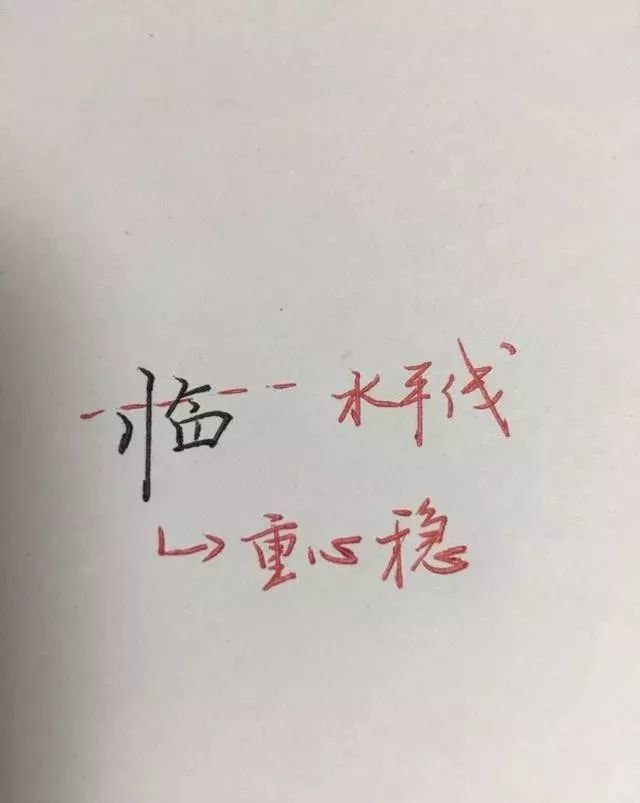 临 水平线
重心稳